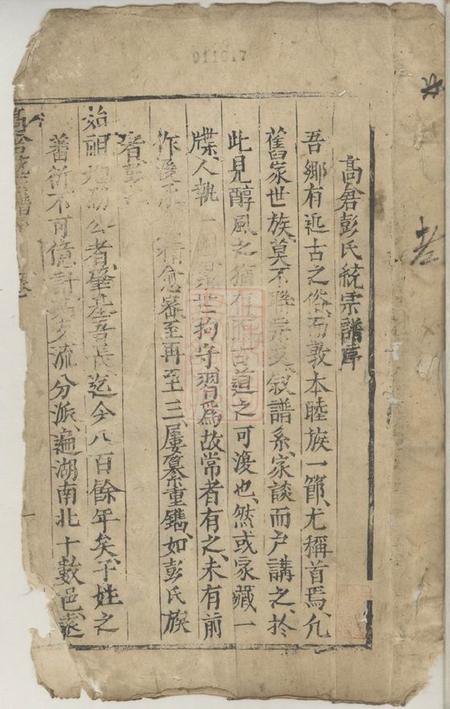 011617
高倉彭氏統宗譜序
吾鄉有近古之俗而敦本睦族一節尤稱首焉凡
舊家世族莫不聯宗 敘譜系家談而戶講之於
此見醇風之猶有 古道之可復也然或家藏一
牒人執一 世拘守習爲故常者有之未有前
作後 精愈審至再至三屢纂重鐫如彭氏族
者
始祖 公者肇基吾 迄今八百餘年矣子姓之
蕃衍不可億計 流分派遍湖南北十數邑